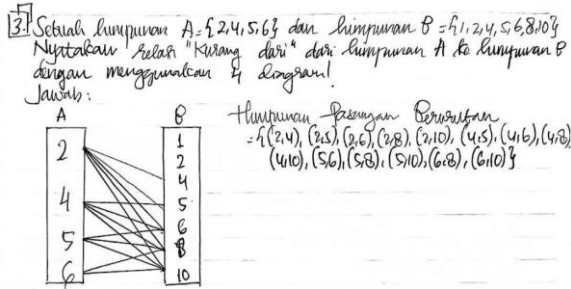 3. Sebuah himpunan A = {2,4,5,6} dan himpunan B = {1,2,4,5,6,8,10}
Nyatakan relasi "Kurang dari" dari himpunan A ke himpunan B
dengan menggunakan 4 diagram!
Jawab:
A B Himpunan Pasangan Berurutan
= {(2,4), (2,5), (2,6), (2,8), (2,10), (4,5), (4,6), (4,8)
(4,10), (5,6), (5,8), (5,10), (6,8), (6,10)}
2
4
5
6
1
2
4
5
6
8
10